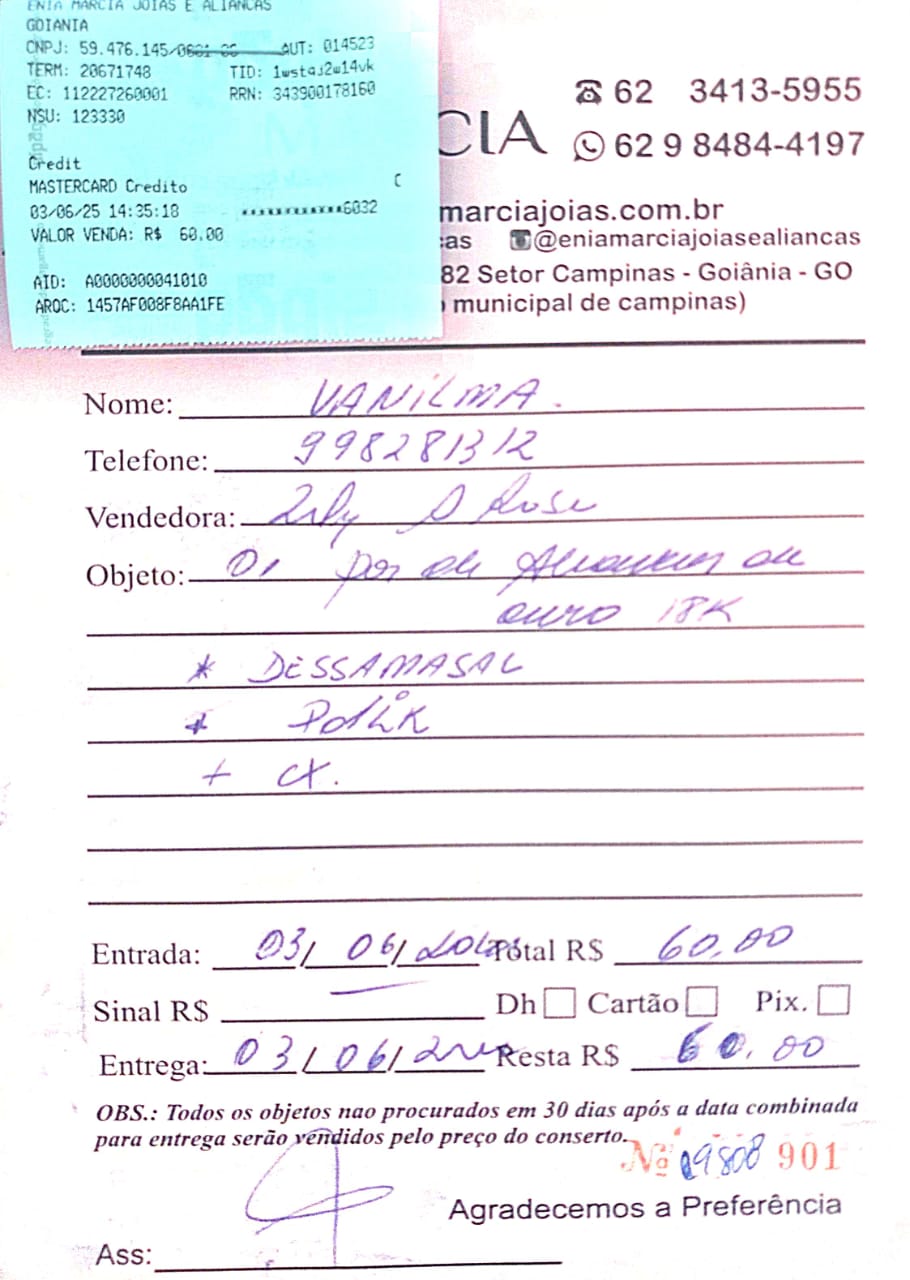 ENIA MARCIA JOIAS E ALIANCAS
GOIANIA
CNPJ: 59.476.145/ AUT: 014523
TERM: 20671748 TID: 1wstaj2w14vk
EC: 112227260001 RRN: 343900178160
NSU: 123330
Credit
MASTERCARD Credito C
03/06/25 14:35:18 ************6032
VALOR VENDA: R$ 60.00
AID: A0000000041010
AROC: 1457AF008F8AA1FE
CIA
62 3413-5955
62 9 8484-4197
marciajoias.com.br
as @eniamarciajoiasealiancas
82 Setor Campinas - Goiânia - GO
municipal de campinas)
Nome: VANILMA.
Telefone: 998281312
Vendedora:
Objeto: 01 par de Alianças de
ouro 18K
* DESSAMASAL
* Polik
+ CX.
Entrada: 03/ 06/ Total R$ 60,00
Sinal R$ Dh Cartão Pix.
Entrega: 03/ 06/ Resta R$ 60,00
OBS.: Todos os objetos nao procurados em 30 dias após a data combinada
para entrega serão vendidos pelo preço do conserto.
Nº 901
Agradecemos a Preferência
Ass: